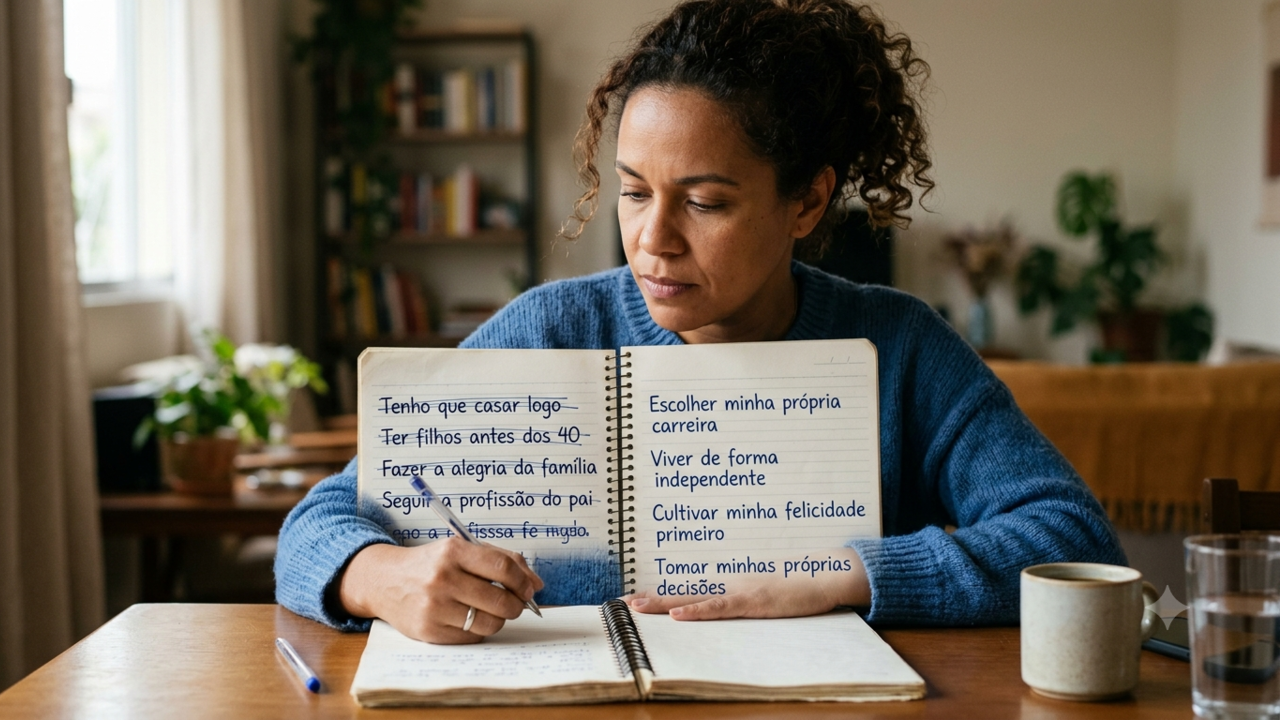 Tenho que casar logo
Ter filhos antes dos 40
Fazer a alegria da família
Seguir a profissão do pai
Escolher minha própria
carreira
Viver de forma
independente
Cultivar minha felicidade
primeiro
Tomar minhas próprias
decisões